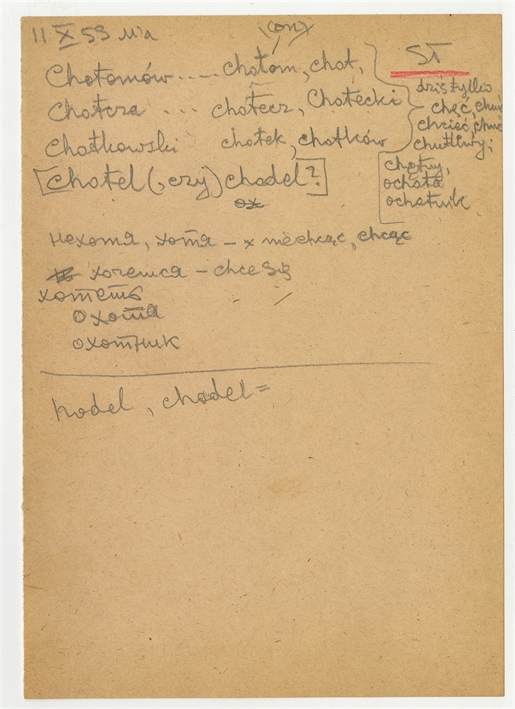 11 X 53
(on)
Chotomów .... chotom, chot,
Chotcza ... chotecz, Chotecki
Chotkowski chotek, chotków
chotel (, czy) chodel?
ox
SŁ
dziś tylko
chęć, chuć
chcieć, chuć
chutliwy,
chętny,
ochota
ochotnik
нехотя, хотя – nie chcąc, chcąc
хочется – chce się
хотеть
охота
охотник
podel, chodel =